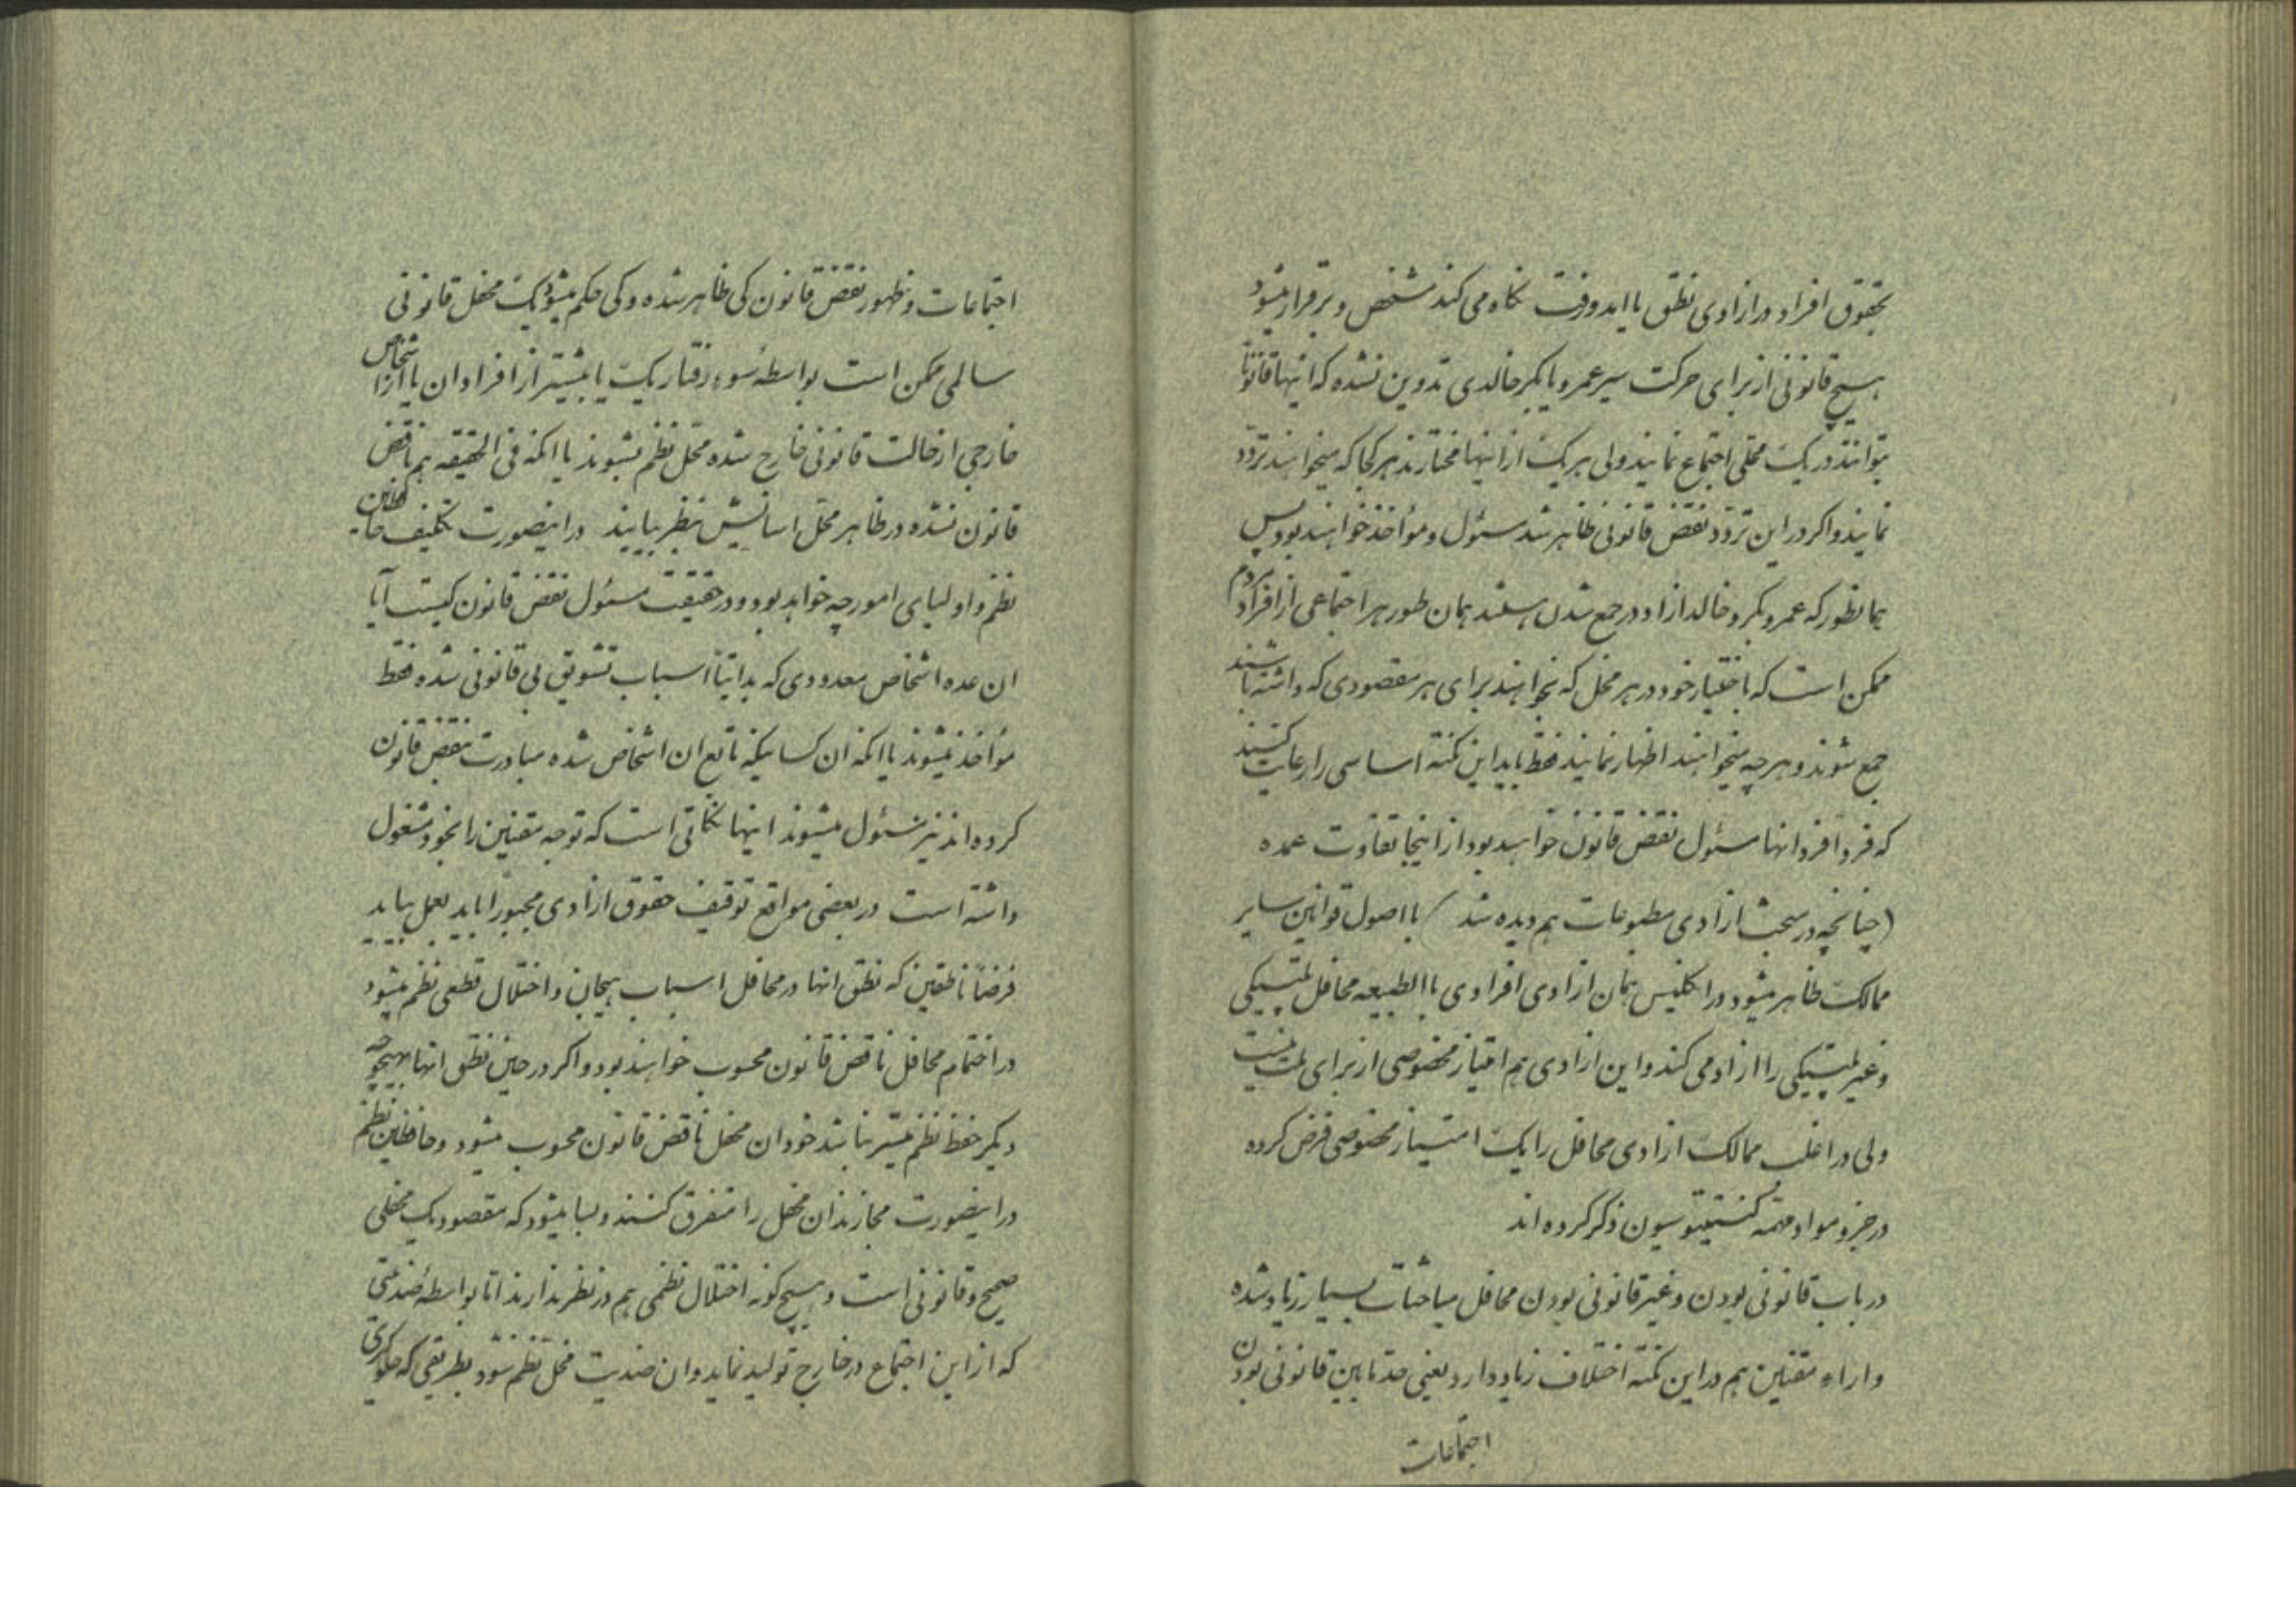 بحقوق افراد در ازادی نطق باید و وقت نگاه می کند مشخص و برقرار میشود
هیچ قانونی از برای حرکت سیر عمرو یا بکر خالدی تدوین نشده که اینها قانوناً
بتوانند در یک محلی اجتماع نمایند ولی هریک از اینها مختارند هرکجا که میخواهند تردد
نمایند و اکر در این تردد نقض قانونی ظاهر شد مسئول و مؤاخذ خواهند بود پس
همانطور که عمرو بکر و خالد ازاد در جمع شدن هستند همان طور هر اجتماعی از افراد مردم
ممکن است که باختیار خود در هر محل که بخواهند برای هر مقصودی که داشته باشند
جمع شوند و هرچه میخواهند اظهار نمایند فقط باید این نکته اساسی را رعایت کنند
که فرداً فرد انها مسئول نقض قانون خواهند بود از اینجا تفاوت عمده
(چنانچه در مبحث ازادی مطبوعات هم دیده شد) با اصول قوانین سایر
ممالک ظاهر میشود در انکلیس همان ازادی افرادی باالطبیعه محافل پلتیکی
و غیر پلتیکی را ازاد می کند و این ازادی هم امتیاز مخصوصی از برای ملت نیست
ولی در اغلب ممالک ازادی محافل را یک امتیاز مخصوصی فرض کرده
در جزو مواد مهمّه کنستیتوسیون ذکر کرده اند
در باب قانونی بودن و غیر قانونی بودن محافل مباحثات بسیار زیاد شده
و اراء مقننین هم در این نکته اختلاف زیاد دارد یعنی حد مابین قانونی بودن
اجتماعات
اجتماعات و ظهور نقض قانون کی ظاهر شده و کی حکم میشود یک محفل قانونی
سالمی ممکن است بواسطه سوء رفتار یک یا بیشتر از افراد ان یا از اشخاص
خارجی از حالت قانونی خارج شده مخل نظم بشوند یا انکه فی الحقیقه هم ناقض
قانون نشده در ظاهر مخل اسایش بنظر بیایند در اینصورت تکلیف حافظین
نظم و اولیای امور چه خواهد بود و در حقیقت مسئول نقض قانون کیست آیا
ان عده اشخاص معدودی که بدایتاً اسباب تشویق بی قانونی شده فقط
مؤاخذ میشوند یا انکه ان کسانیکه تابع ان اشخاص شده مبادرت بنقض قانون
کرده اند نیز مسئول میشوند اینها نکاتی است که توجه مقننین را بخود مشغول
داشته است در بعضی مواقع توقیف حقوق ازادی مجبوراً باید بعمل بیاید
فرضاً ناطقین که نطق انها در محافل اسباب هیجان و اختلال قطعی نظم میشود
در اختتام محافل ناقض قانون محسوب خواهند بود و اکر در حین نطق انها بهیچوجه
دیکر حفظ نظم میسّر نباشد خود ان محفل ناقض قانون محسوب میشود و حافظین نظم
در اینصورت مجازند ان محفل را متفرق کنند و بسا میشود که مقصود یک محفلی
صحیح و قانونی است و هیچ کونه اختلال نظمی هم در نظر ندارند اما بواسطه ضدیتی
که از این اجتماع در خارج تولید نماید و ان ضدیت مخل نظم شود بطریقی که جلوکیری